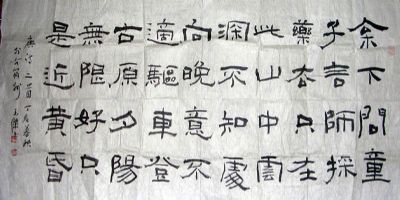 松下問童
子言師採
藥去只在
此山中雲
深不知處
向晚意不
適驅車登
古原夕陽
無限好只
是近黃昏
唐詩二首